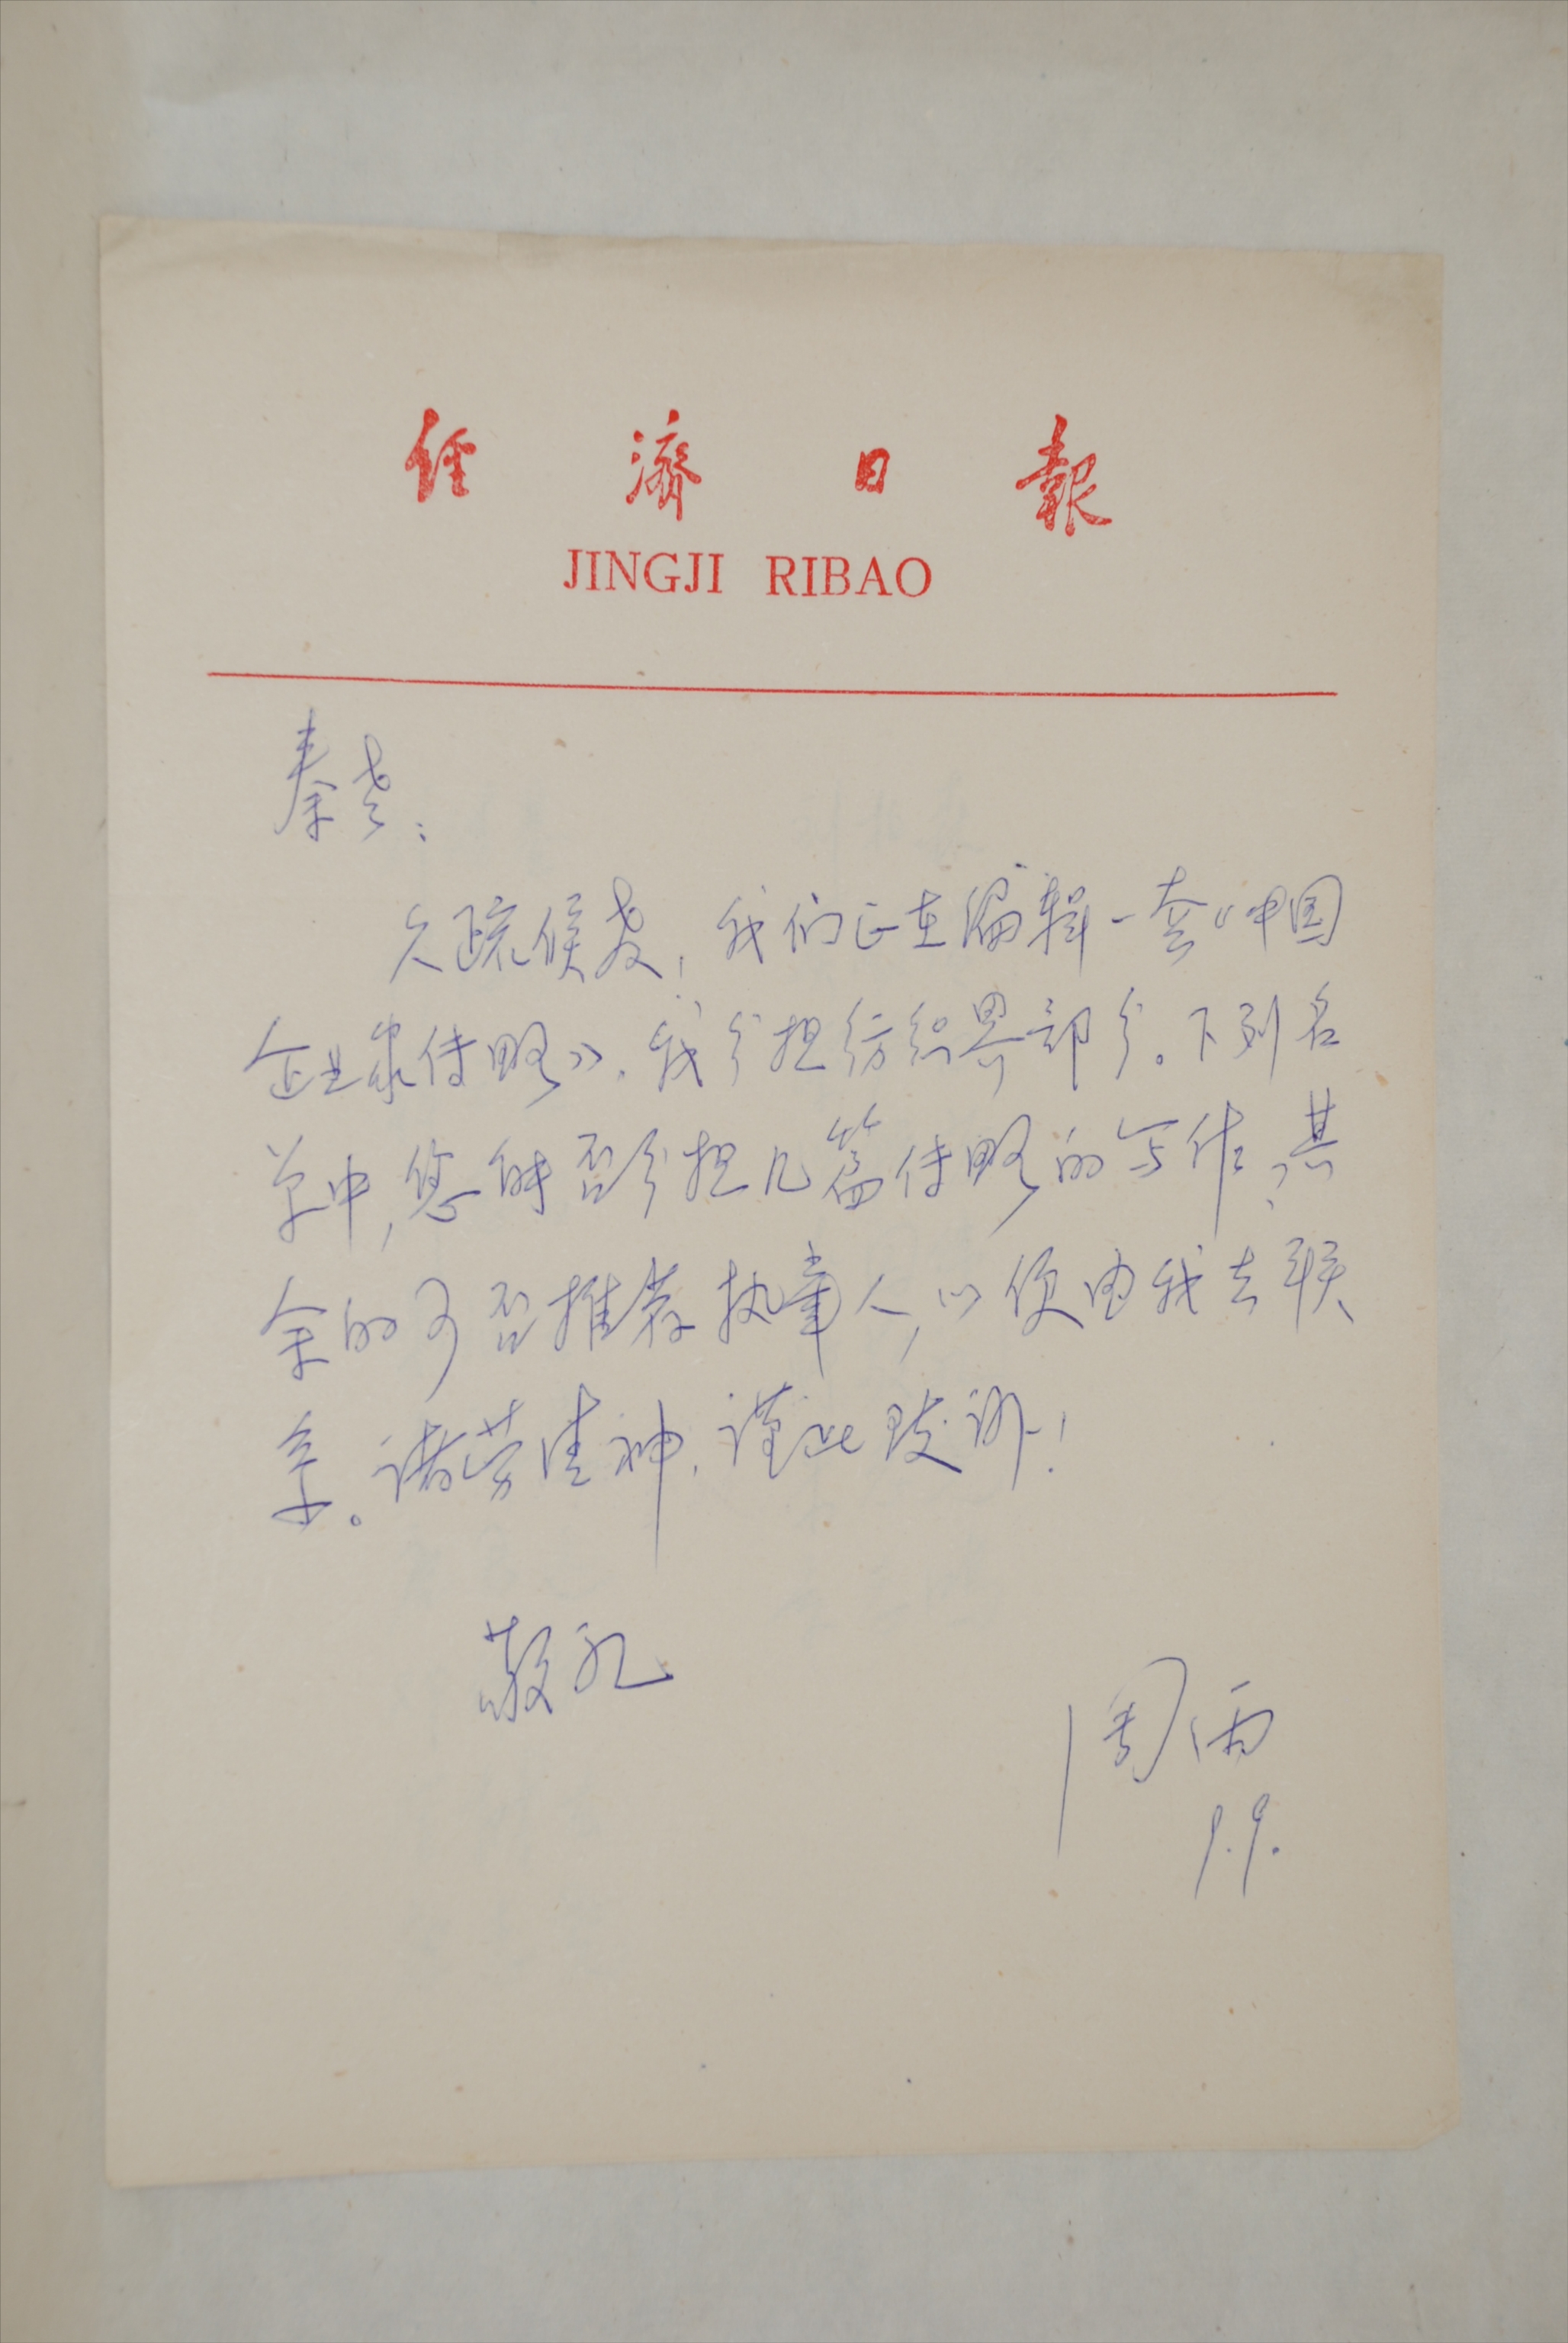 经济日報
JINGJI RIBAO
秦老：
久疏候教！我们正在编辑一套《中国
企业家传略》，我分担纺织界部分。下列名
单中，您能否分担几篇传略的写作，其
余的可否推荐执笔人，以便由我去联
系。诸劳清神，谨此致谢！
敬礼
周雨
9.9.